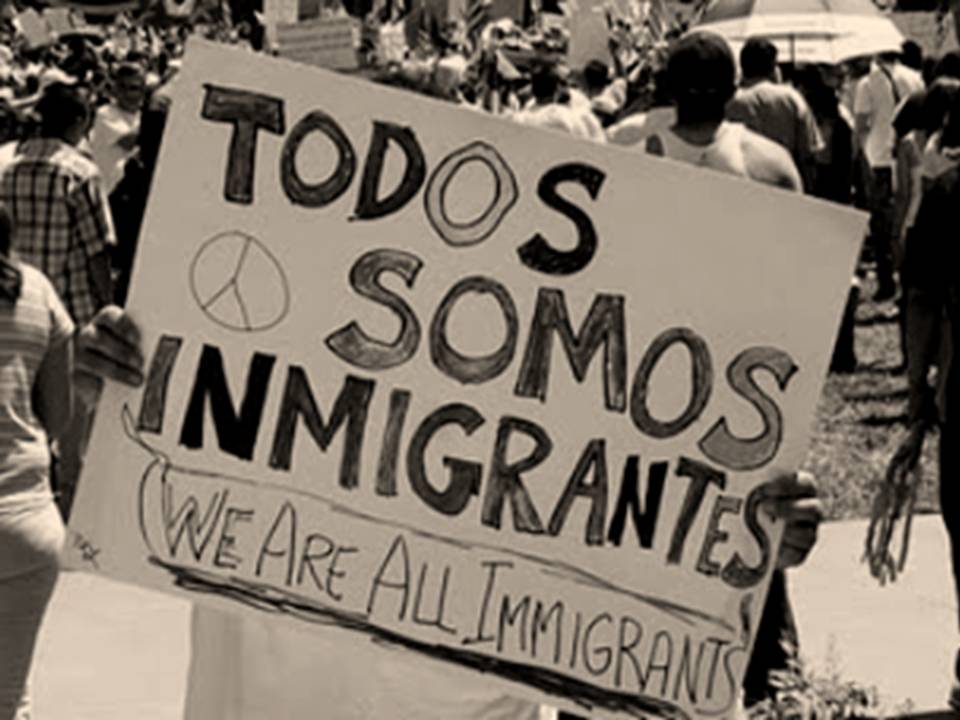 TODOS
SOMOS
INMIGRANTES
(WE ARE ALL IMMIGRANTS)